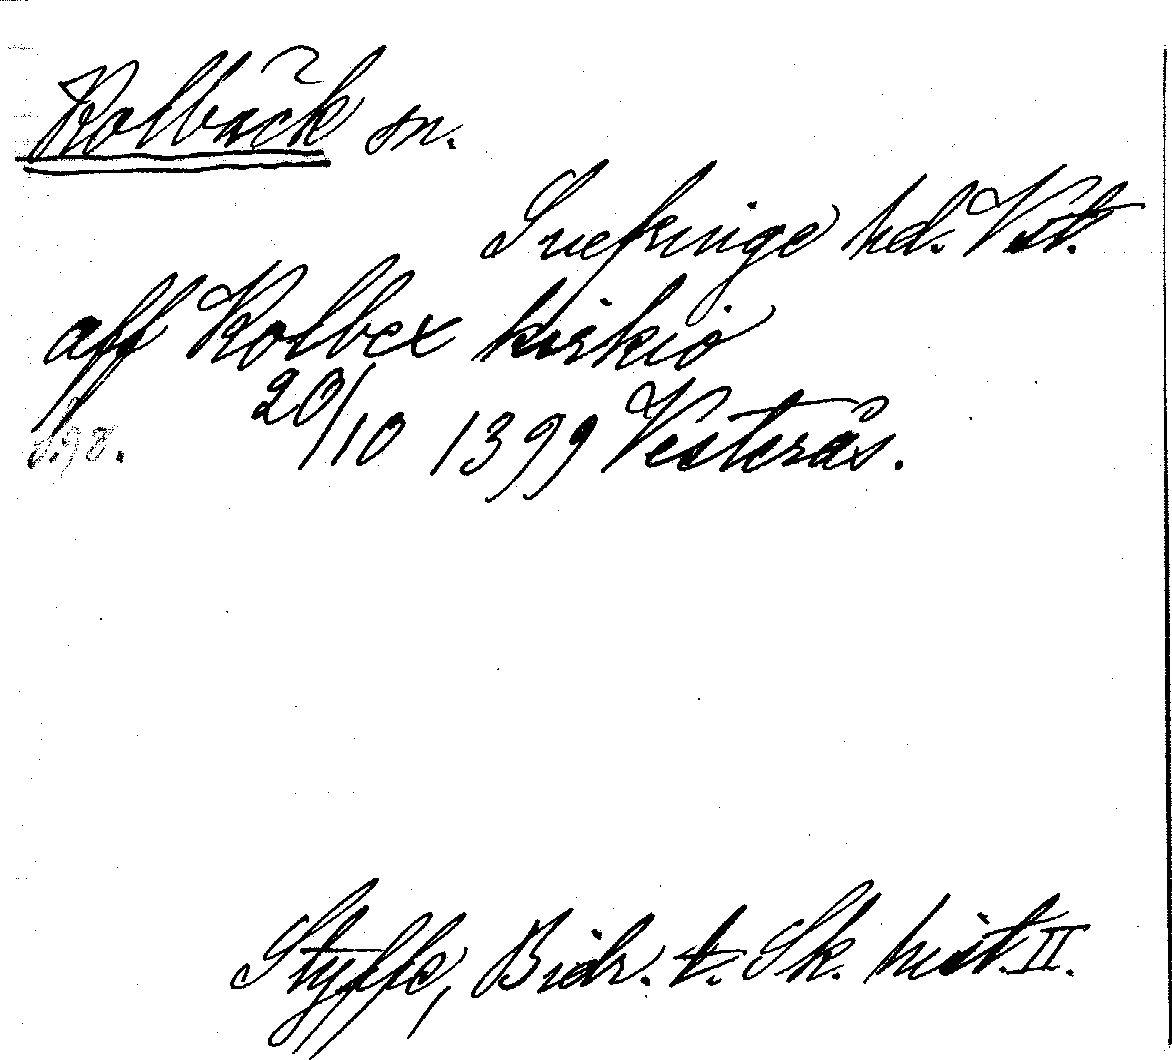 Kolbäck sn.
Snefringe hd. Vst.
aff Kolbex kirkio
20/10 1399 Vesterås.
Styffe, Bidr. t. Sk. hist. II.